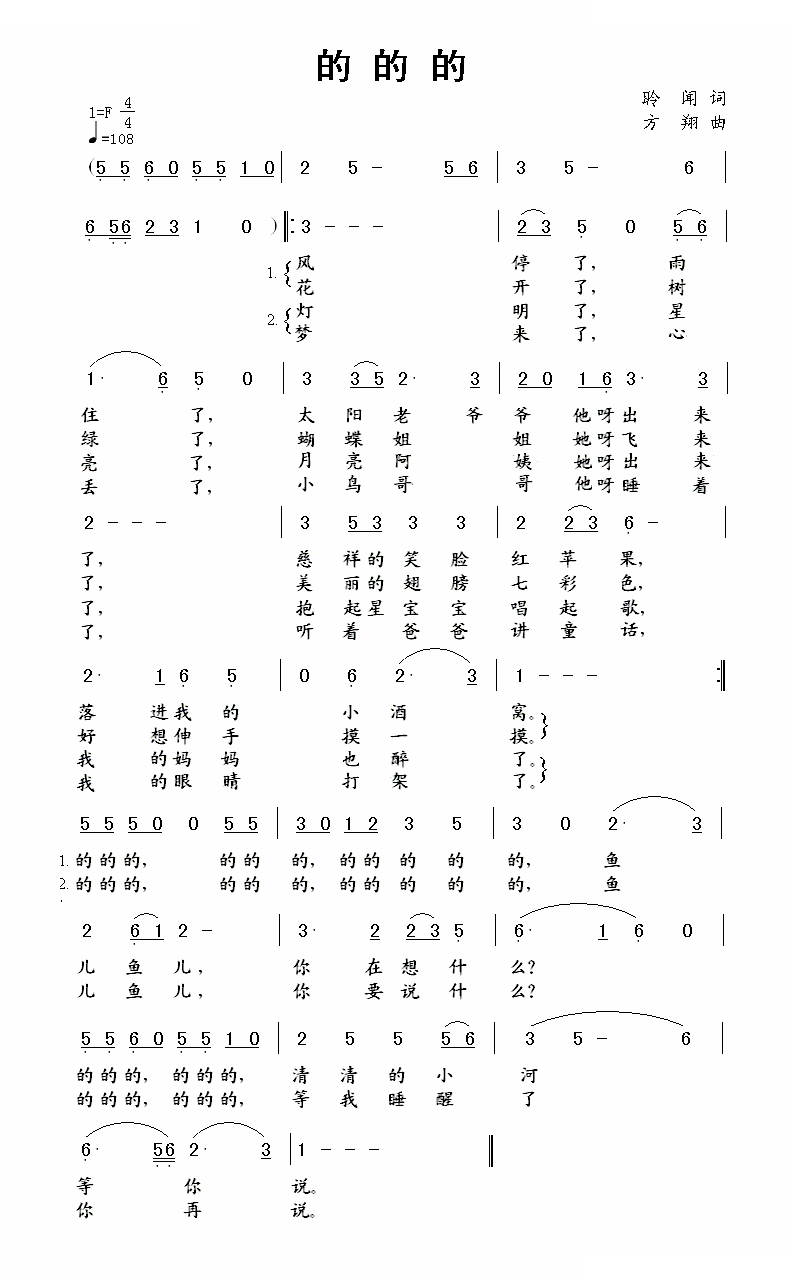 的 的 的
1=F 4/4
♩=108
聆 闻 词
方 翔 曲
(5 5 6 0 5 5 1 0 | 2 5 - 5 6 | 3 5 - 6 |
6 5 6 2 3 1 0 ) ‖: 3 - - - | 2 3 5 0 5 6 |
1. 风 停 了, 雨
花 开 了, 树
2. 灯 明 了, 星
梦 来 了, 心
1· 6 5 0 | 3 3 5 2· 3 | 2 0 1 6 3· 3 |
住 了, 太 阳 老 爷 爷 他 呀 出 来
绿 了, 蝴 蝶 姐 姐 她 呀 飞 来
亮 了, 月 亮 阿 姨 她 呀 出 来
丢 了, 小 鸟 哥 哥 他 呀 睡 着
2 - - - | 3 5 3 3 3 | 2 2 3 6 - |
了, 慈 祥 的 笑 脸 红 苹 果,
了, 美 丽 的 翅 膀 七 彩 色,
了, 抱 起 星 宝 宝 唱 起 歌,
了, 听 着 爸 爸 讲 童 话,
2· 1 6 5 | 0 6 2· 3 | 1 - - - :‖
落 进 我 的 小 酒 窝。
好 想 伸 手 摸 一 摸。
我 的 妈 妈 也 醉 了。
我 的 眼 睛 打 架 了。
5 5 5 0 0 5 5 | 3 0 1 2 3 5 | 3 0 2· 3 |
1. 的 的 的, 的 的 的, 的 的 的 的 的, 鱼
2. 的 的 的, 的 的 的, 的 的 的 的 的, 鱼
2 6 1 2 - | 3· 2 2 3 5 | 6· 1 6 0 |
儿 鱼 儿, 你 在 想 什 么?
儿 鱼 儿, 你 要 说 什 么?
5 5 6 0 5 5 1 0 | 2 5 5 5 6 | 3 5 - 6 |
的 的 的, 的 的 的, 清 清 的 小 河
的 的 的, 的 的 的, 等 我 睡 醒 了
6· 5 6 2· 3 | 1 - - - ‖
等 你 说。
你 再 说。